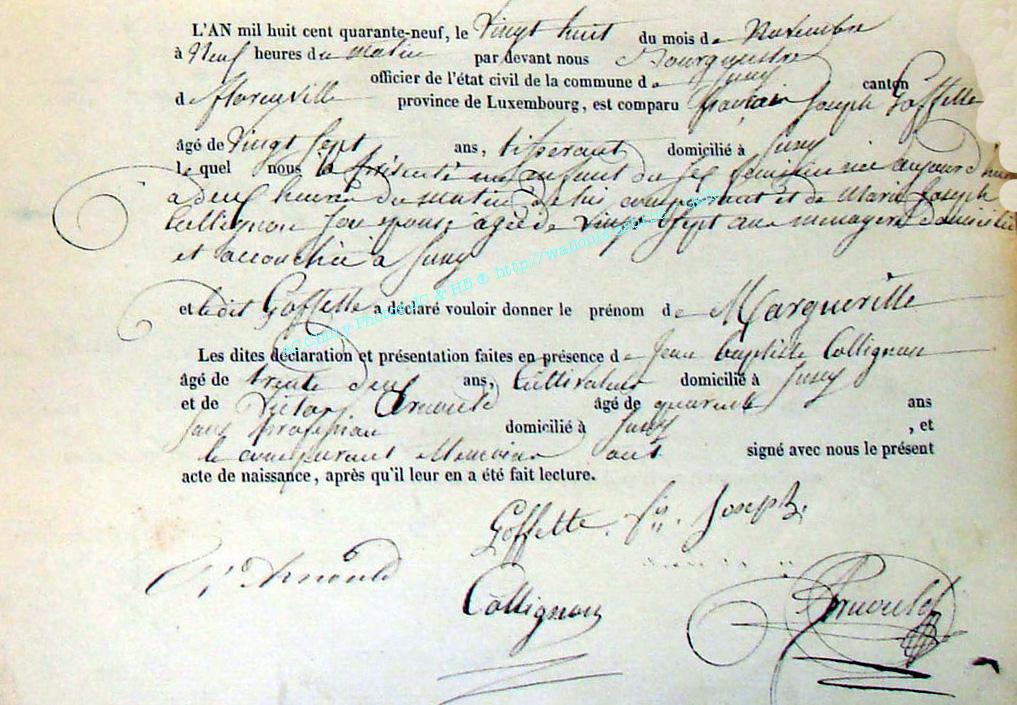 L'AN mil huit cent quarante-neuf, le Vingt huit du mois de Novembre
à Neuf heures du matin par devant nous Bourgmestre
officier de l'état civil de la commune de Suxy canton
de florenville province de Luxembourg, est comparu Joseph Goffette
âgé de Vingt Sept ans, tisserant domicilié à Suxy
lequel nous à présenté un enfant du sex féminin né aujourd'hui
a deux heures du matin de lui comparant et de Marie Joseph
Collignon son épouse agée de Vingt Sept ans menagère domicilié
et accouchée à Suxy
et ledit Goffette a déclaré vouloir donner le prénom de Margueritte
Les dites déclaration et présentation faites en présence de Jean baptiste Collignon
âgé de trente deux ans, Cultivateur domicilié à Suxy
et de Victor Arnould âgé de quarente ans
sans profession domicilié à Suxy , et
le comparant et temoins ont signé avec nous le présent
acte de naissance, après qu'il leur en a été fait lecture.
Goffette. Joseph
Arnould
Collignon
Arnould